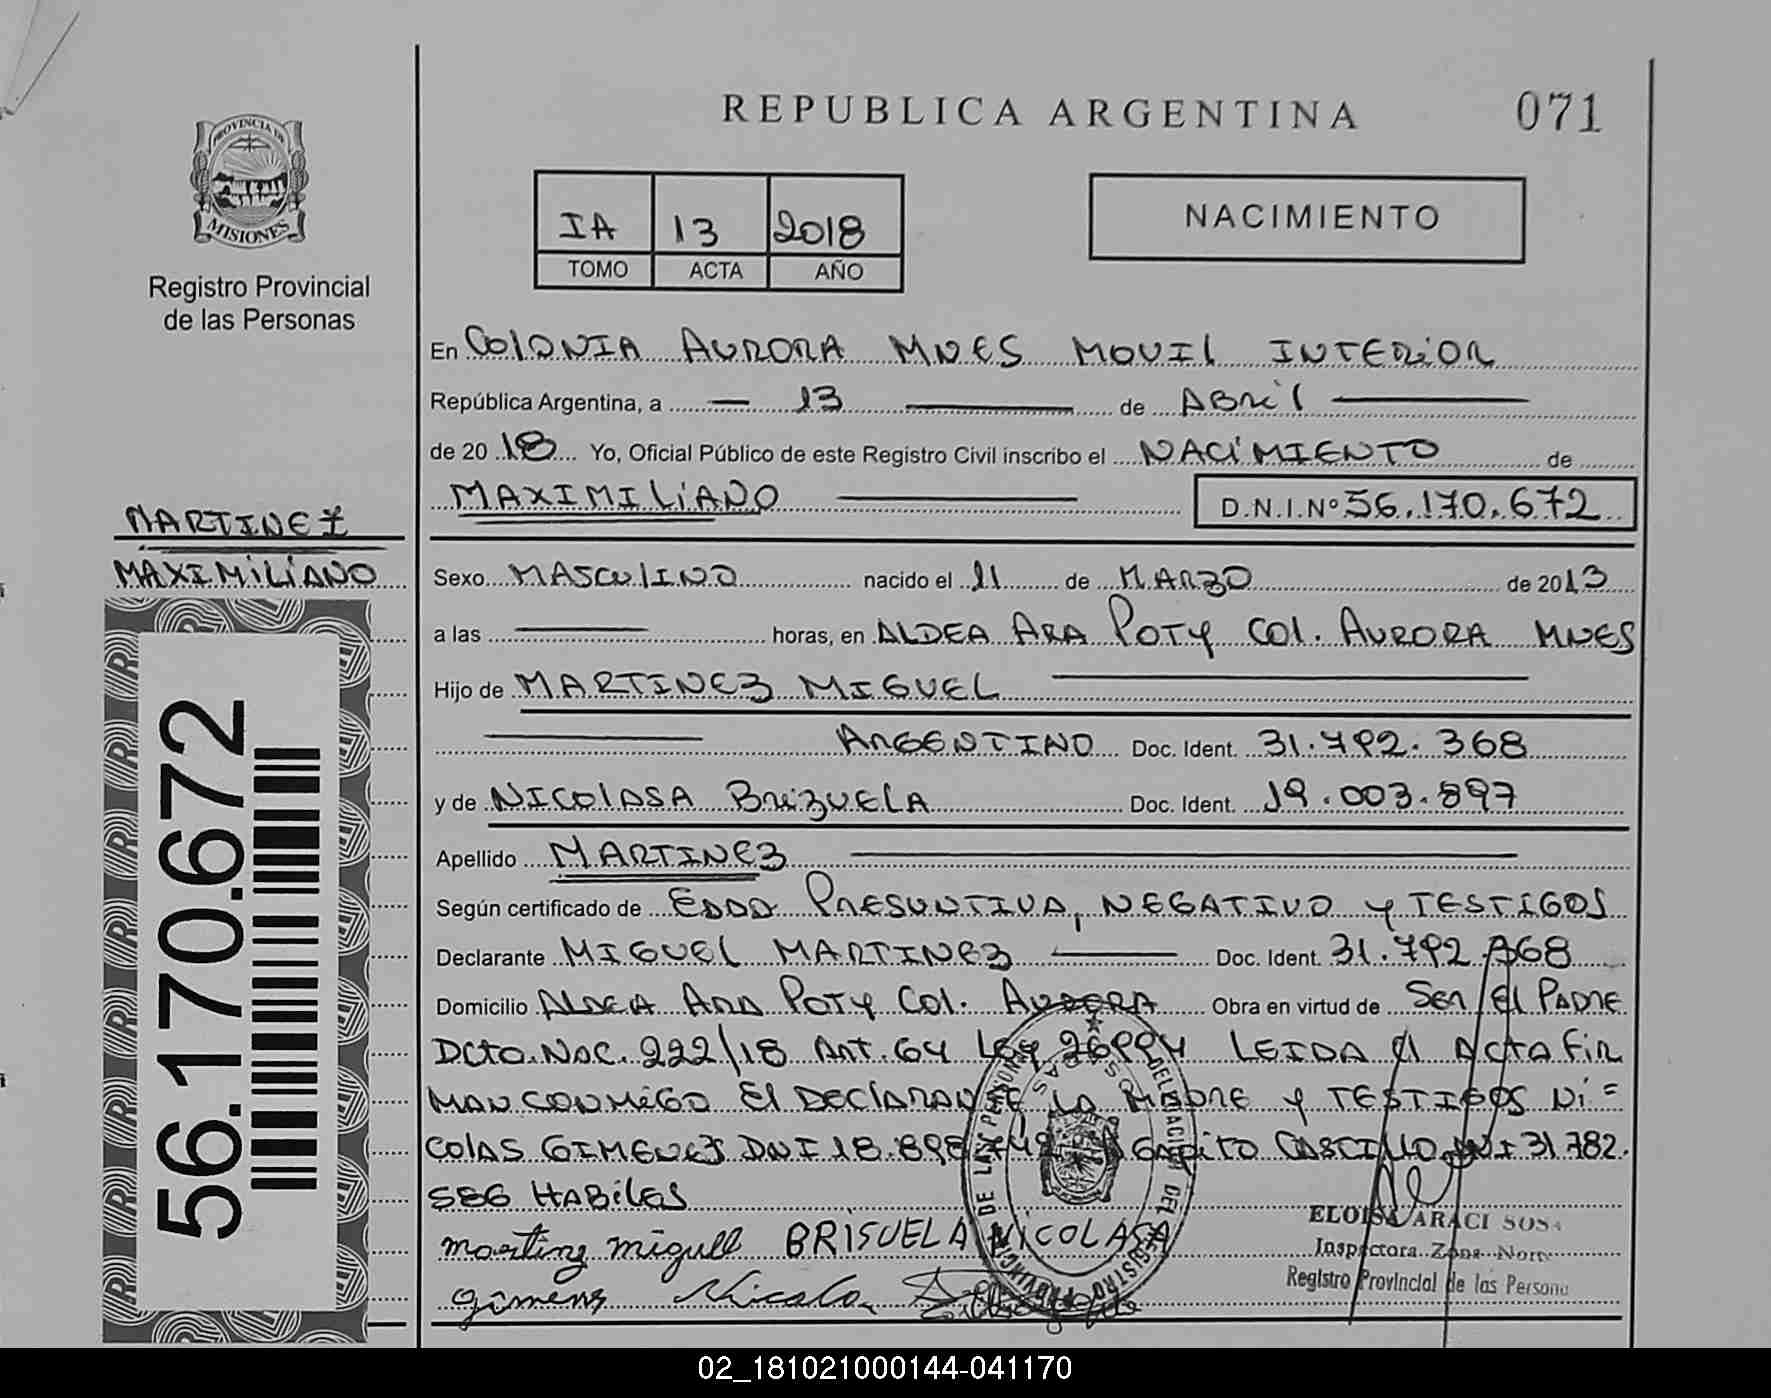 REPUBLICA ARGENTINA
071
PROVINCIA DE
MISIONES
Registro Provincial
de las Personas
IA 13 2018
TOMO ACTA AÑO
NACIMIENTO
En COLONIA AURORA MNES MOVIL INTERIOR
República Argentina, a 13 de ABRIL
de 2018 Yo, Oficial Público de este Registro Civil inscribo el NACIMIENTO de
MAXIMILIANO D.N.I.Nº 56.170.672
MARTINEZ
MAXIMILIANO
56.170.672
Sexo MASCULINO nacido el 11 de MARZO de 2013
a las horas, en ALDEA ARA POTY COL. AURORA MNES
Hijo de MARTINEZ MIGUEL
ARGENTINO Doc. Ident. 31.792.368
y de NICOLASA BRIZUELA Doc. Ident. 19.003.897
Apellido MARTINEZ
Según certificado de EDAD PRESUNTIVA, NEGATIVO y TESTIGOS
Declarante MIGUEL MARTINEZ Doc. Ident. 31.792.368
Domicilio ALDEA ARA POTY COL. AURORA Obra en virtud de SER EL PADRE
DCTO. NAC. 222/18 ART. 64 LEY 26994 LEIDA EL ACTA FIR
MAN CONMIGO EL DECLARANTE LA MADRE y TESTIGOS NI=
COLAS GIMENEZ DNI 18.898.742 AGAPITO CASTILLO DNI 31.782.
586 HABILES
martinez miguel BRISUELA NICOLASA
gimens Nicola
ELOISA ARACI SOSA
Inspectora Zona Norte
Registro Provincial de las Persona
02_181021000144-041170